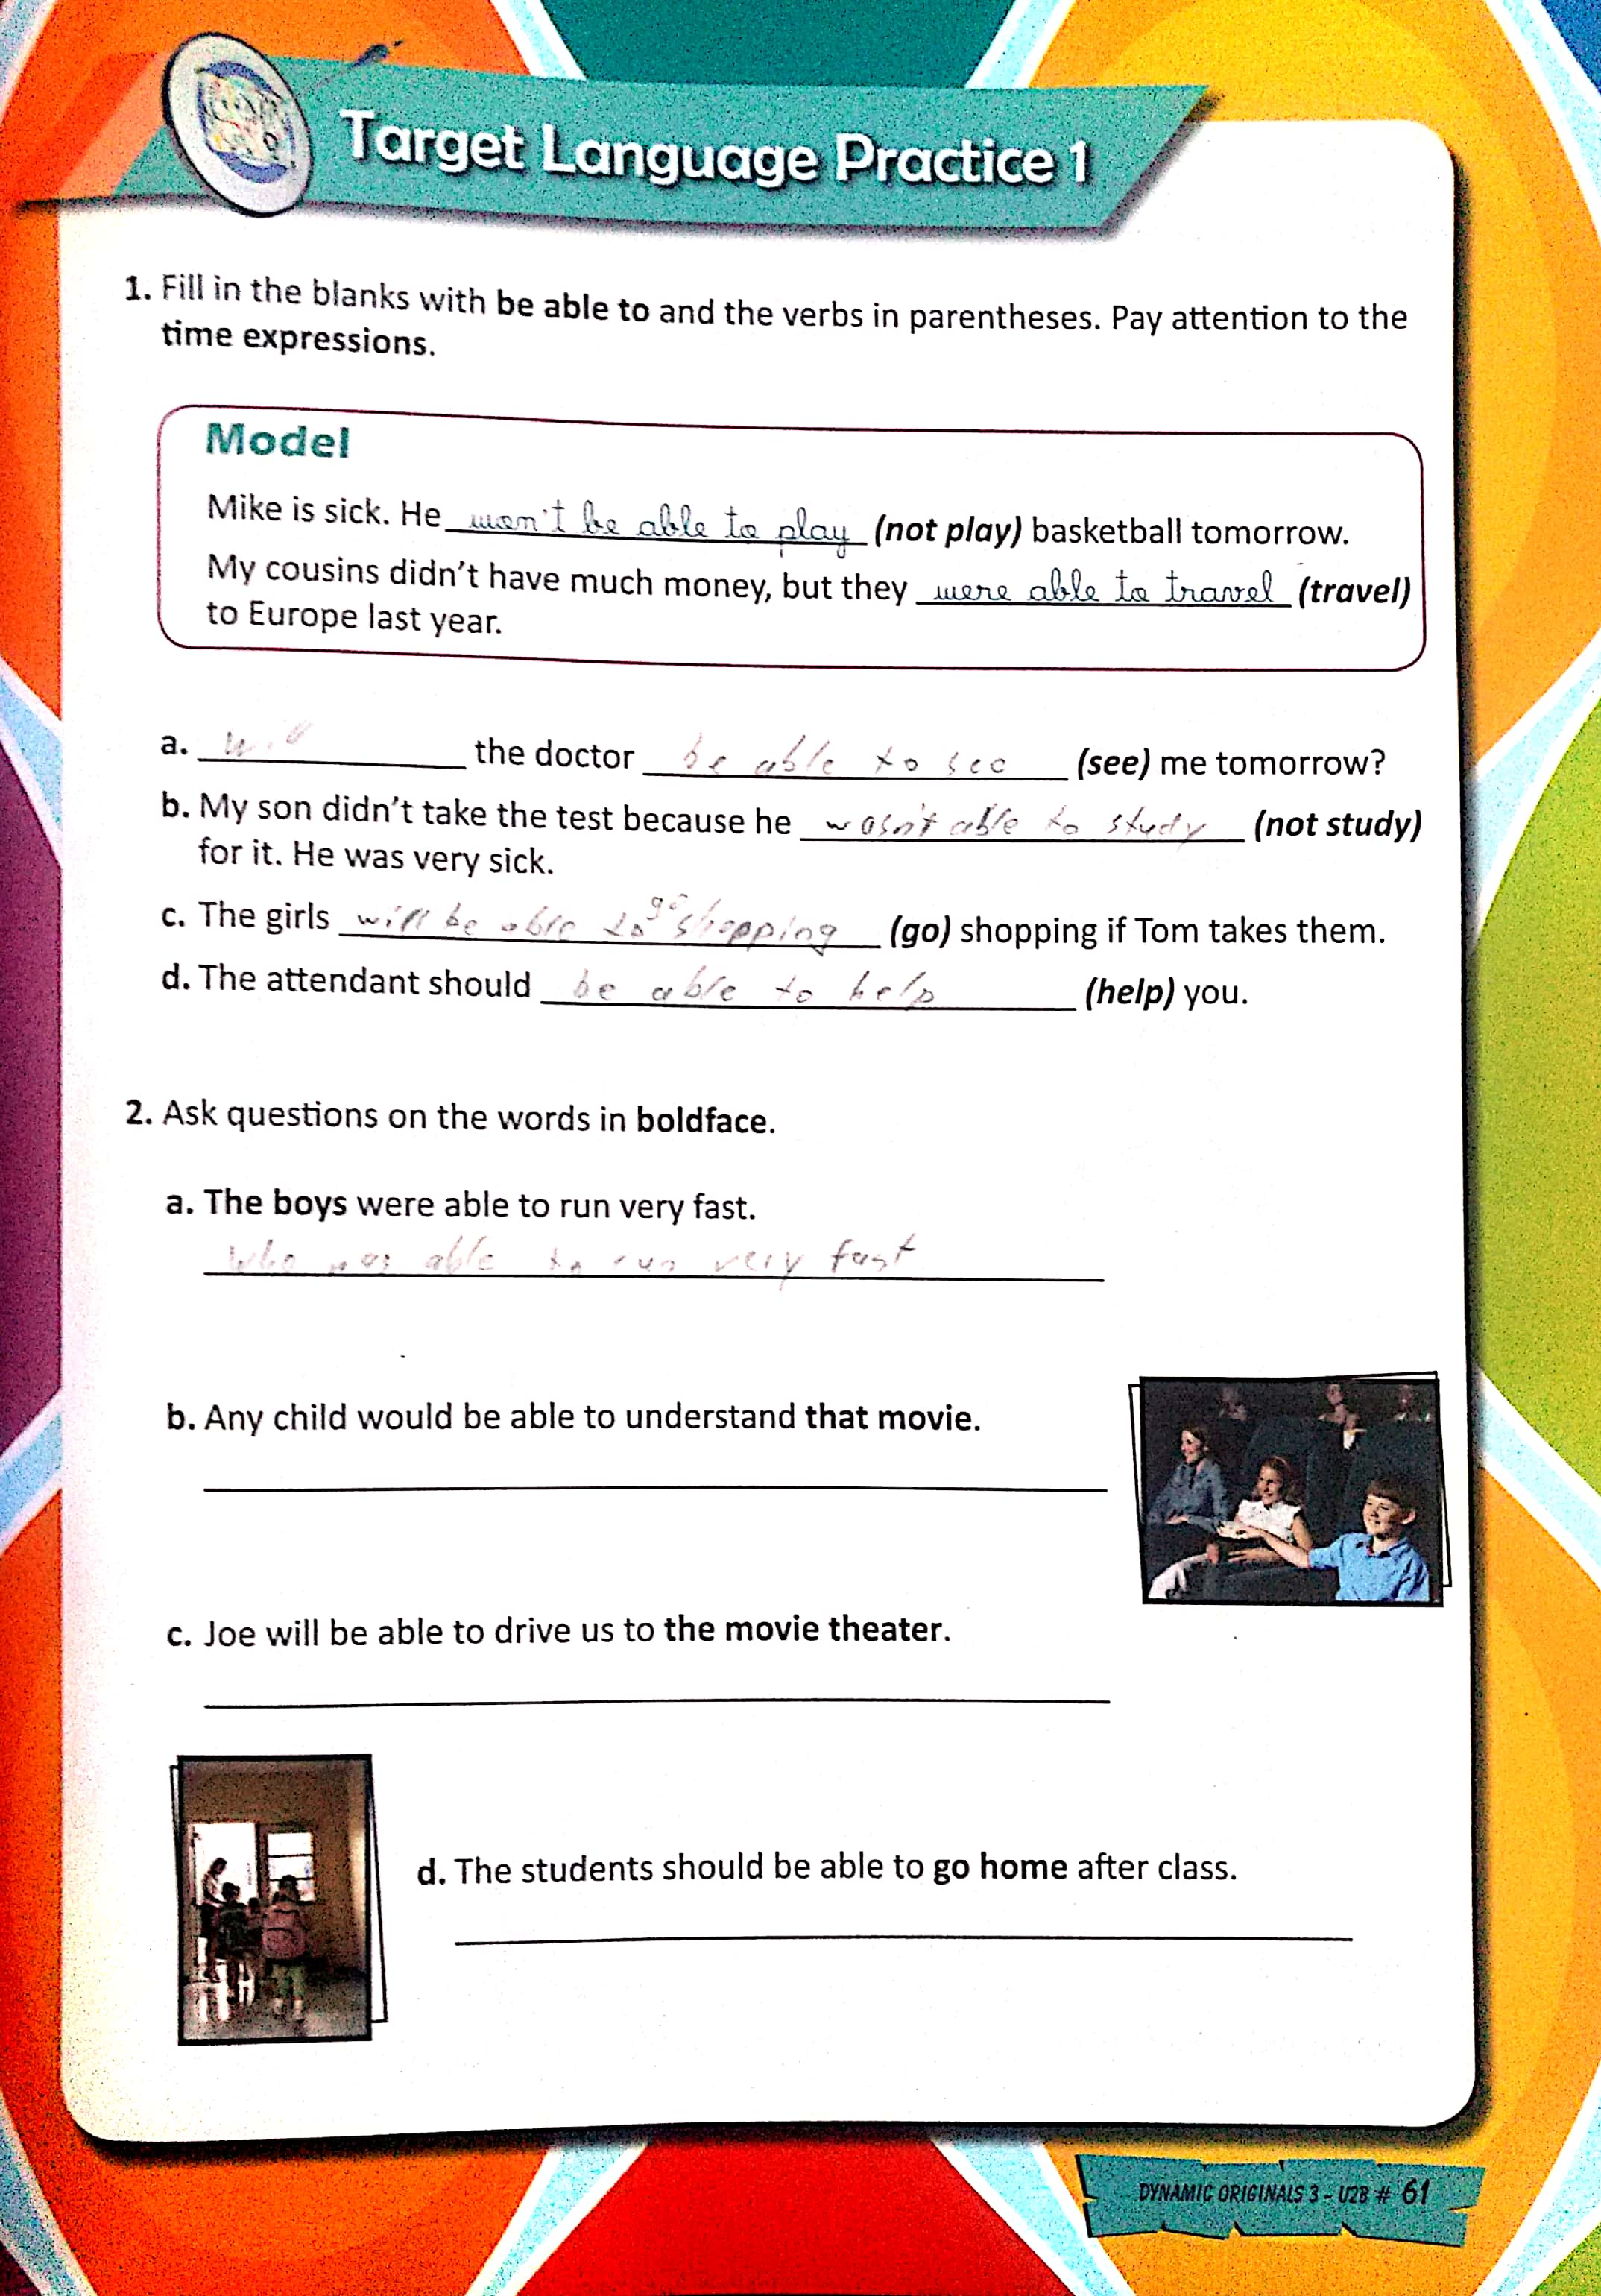 Target Language Practice 1
1. Fill in the blanks with be able to and the verbs in parentheses. Pay attention to the
time expressions.
Model
Mike is sick. He won't be able to play (not play) basketball tomorrow.
My cousins didn't have much money, but they were able to travel (travel)
to Europe last year.
a. will the doctor be able to see (see) me tomorrow?
b. My son didn't take the test because he wasn't able to study (not study)
for it. He was very sick.
c. The girls will be able to go shopping (go) shopping if Tom takes them.
d. The attendant should be able to help (help) you.
2. Ask questions on the words in boldface.
a. The boys were able to run very fast.
Who was able to run very fast
b. Any child would be able to understand that movie.
c. Joe will be able to drive us to the movie theater.
d. The students should be able to go home after class.
DYNAMIC ORIGINALS 3 - U2B # 61